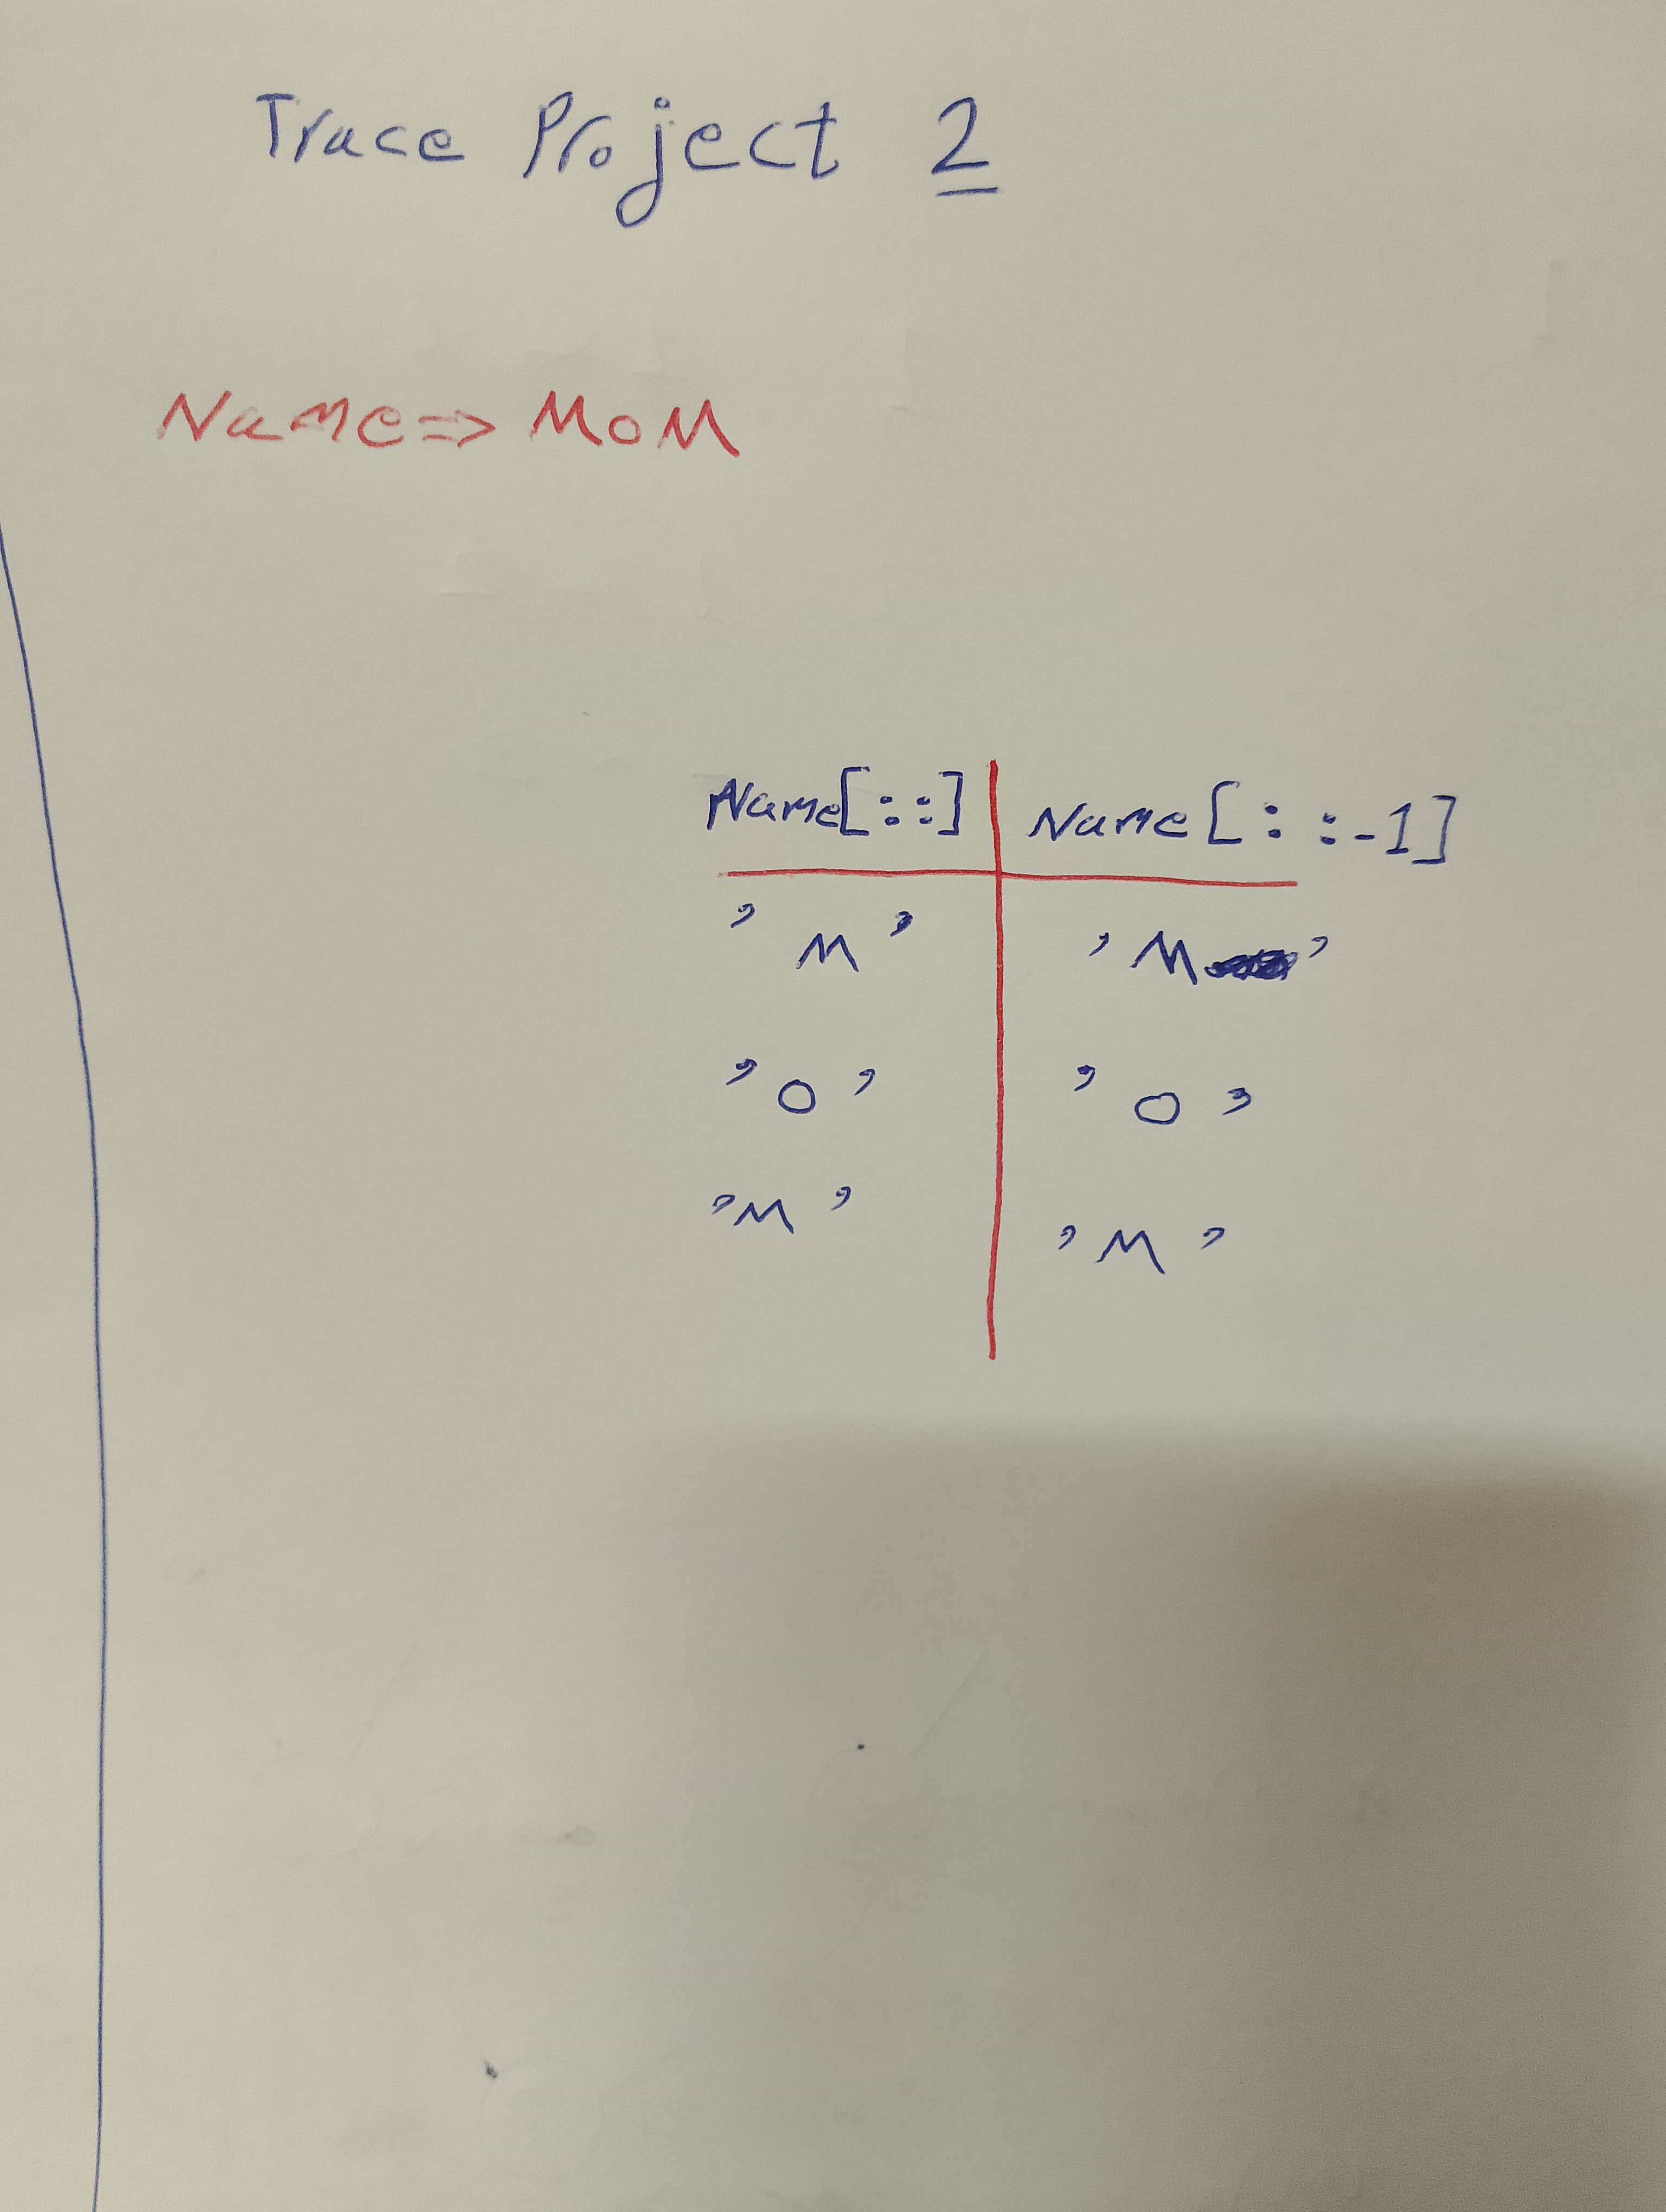 Trace Project 2
Name => MOM
Name[::] Name[::-1]
'M' 'M'
'O' 'O'
'M' 'M'